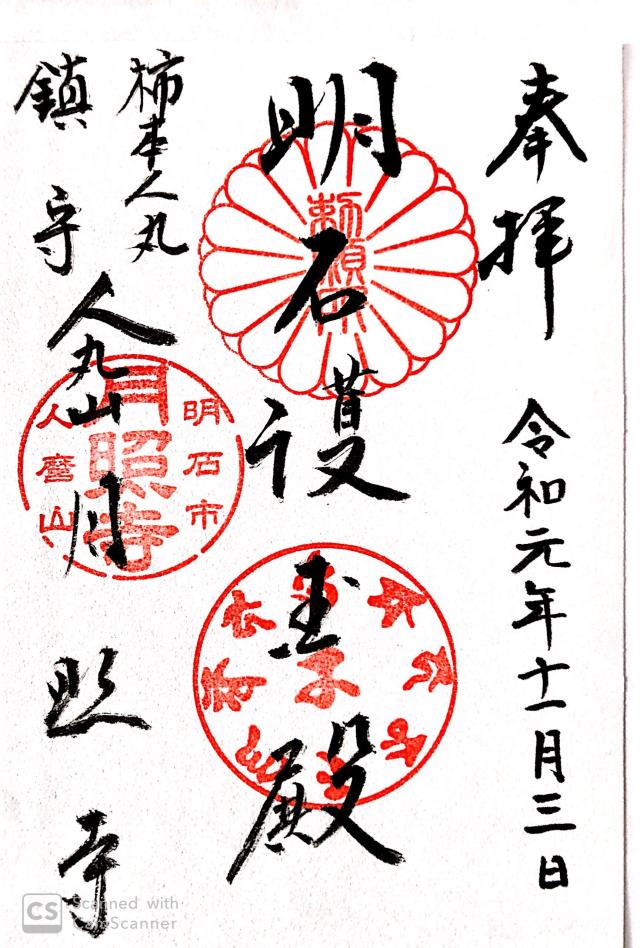 奉拝
令和元年十一月三日
勅願所
明石護
殿
柿本人丸
鎮守
人丸山
月照寺
明石市
月照寺
人麿山
CS Scanned with
CamScanner